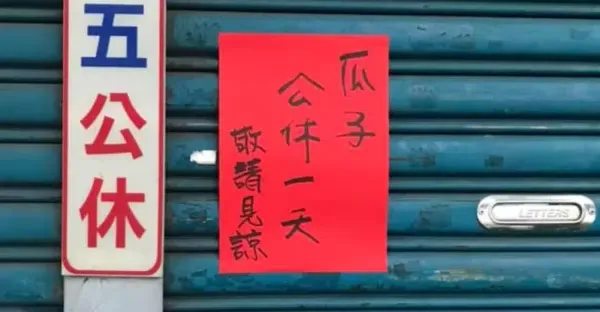 五公休
瓜子
公休一天
敬請見諒
LETTERS